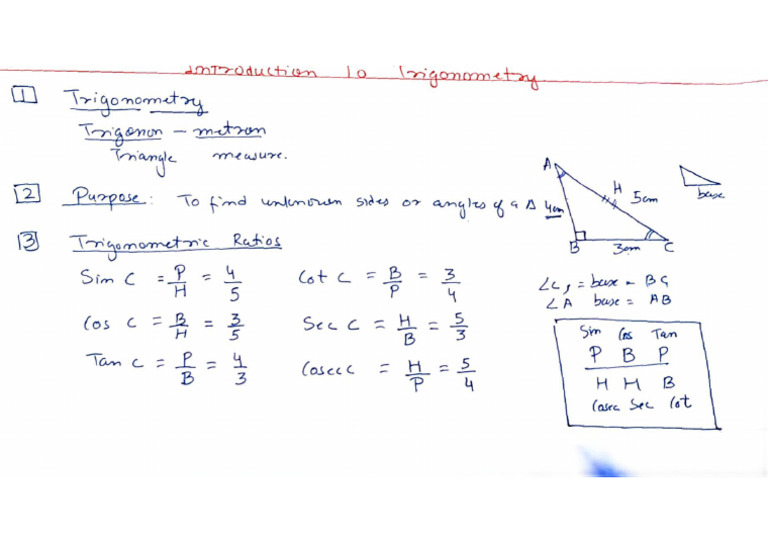 Introduction to Trigonometry
1 Trigonometry
Trigonon - metron
Triangle measure.
2 Purpose: To find unknown sides or angles of a Δ
3 Trigonometric Ratios
Sin C = P/H = 4/5
Cot C = B/P = 3/4
Cos C = B/H = 3/5
Sec C = H/B = 5/3
Tan C = P/B = 4/3
Cosec C = H/P = 5/4
A
H
5cm
4cm
B
3cm
C
base
∠C, = base = BC
∠A base = AB
Sin Cos Tan
P B P
H H B
Cosec Sec Cot